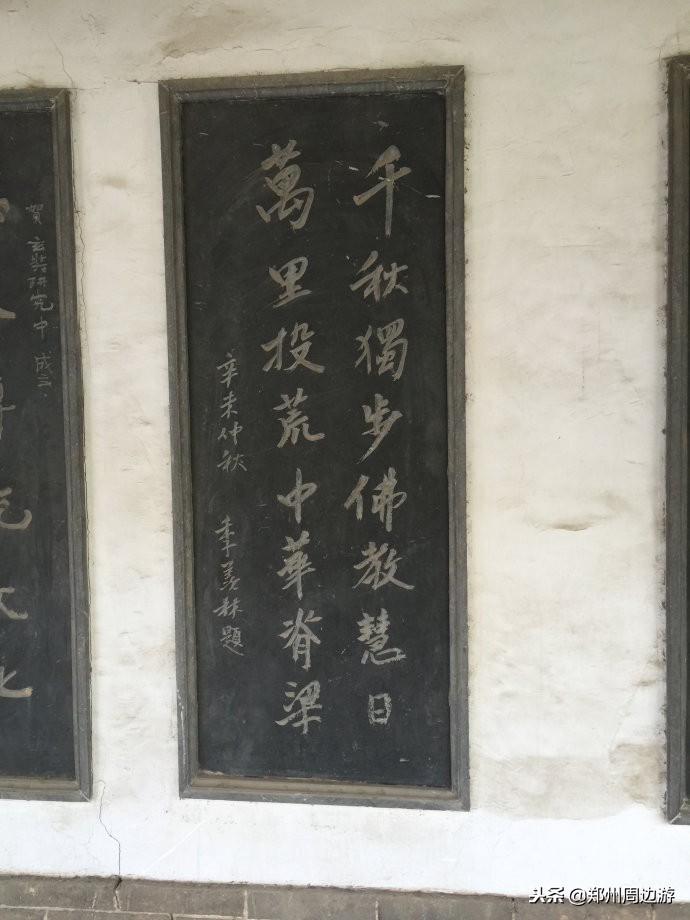 千秋獨步佛教慧日
萬里投荒中華脊梁
辛未仲秋 季羡林題
賀玄奘研究中 成立
头条 @郑州周边游